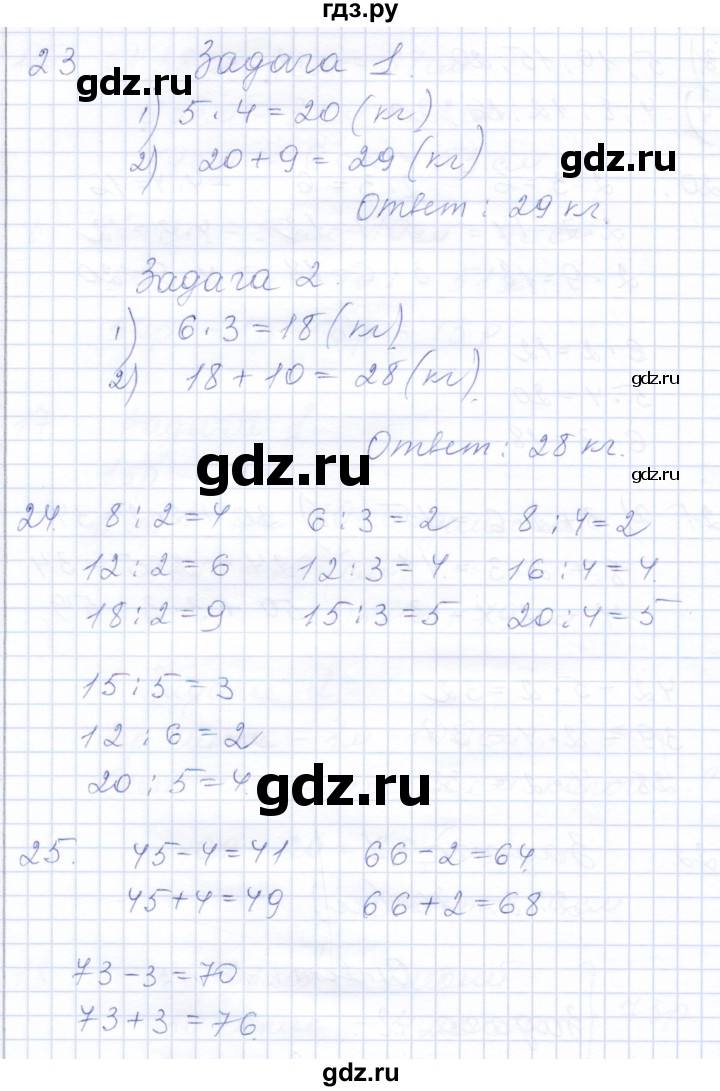 гдз.ру
23 Задача 1.
gdz.ru
1) 5 · 4 = 20 (кг)
2) 20 + 9 = 29 (кг)
gdz.ru
Ответ: 29 кг.
Задача 2.
1) 6 · 3 = 18 (кг)
2) 18 + 10 = 28 (кг).
gdz.ru
Ответ: 28 кг.
gdz.ru
gdz.ru
24. 8 : 2 = 4 6 : 3 = 2 8 : 4 = 2
12 : 2 = 6 12 : 3 = 4. 16 : 4 = 4.
18 : 2 = 9 15 : 3 = 5 20 : 4 = 5
15 : 5 = 3
12 : 6 = 2
20 : 5 = 4.
gdz.ru
25. 45 - 4 = 41 66 - 2 = 64.
45 + 4 = 49 66 + 2 = 68
73 - 3 = 70
73 + 3 = 76.
gdz.ru
gdz.ru